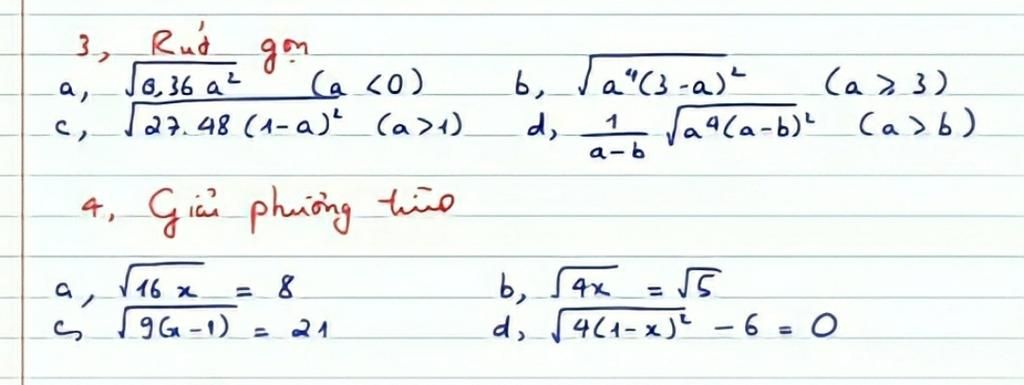 3, Rút gọn
a, √0,36 a² (a < 0) b, √a⁴(3-a)² (a ≥ 3)
c, √27.48 (1-a)² (a > 1) d, 1/(a-b) √a⁴(a-b)² (a > b)
4, Giải phương trình
a, √16 x = 8 b, √4x = √5
c, √9(x-1) = 21 d, √4(1-x)² - 6 = 0